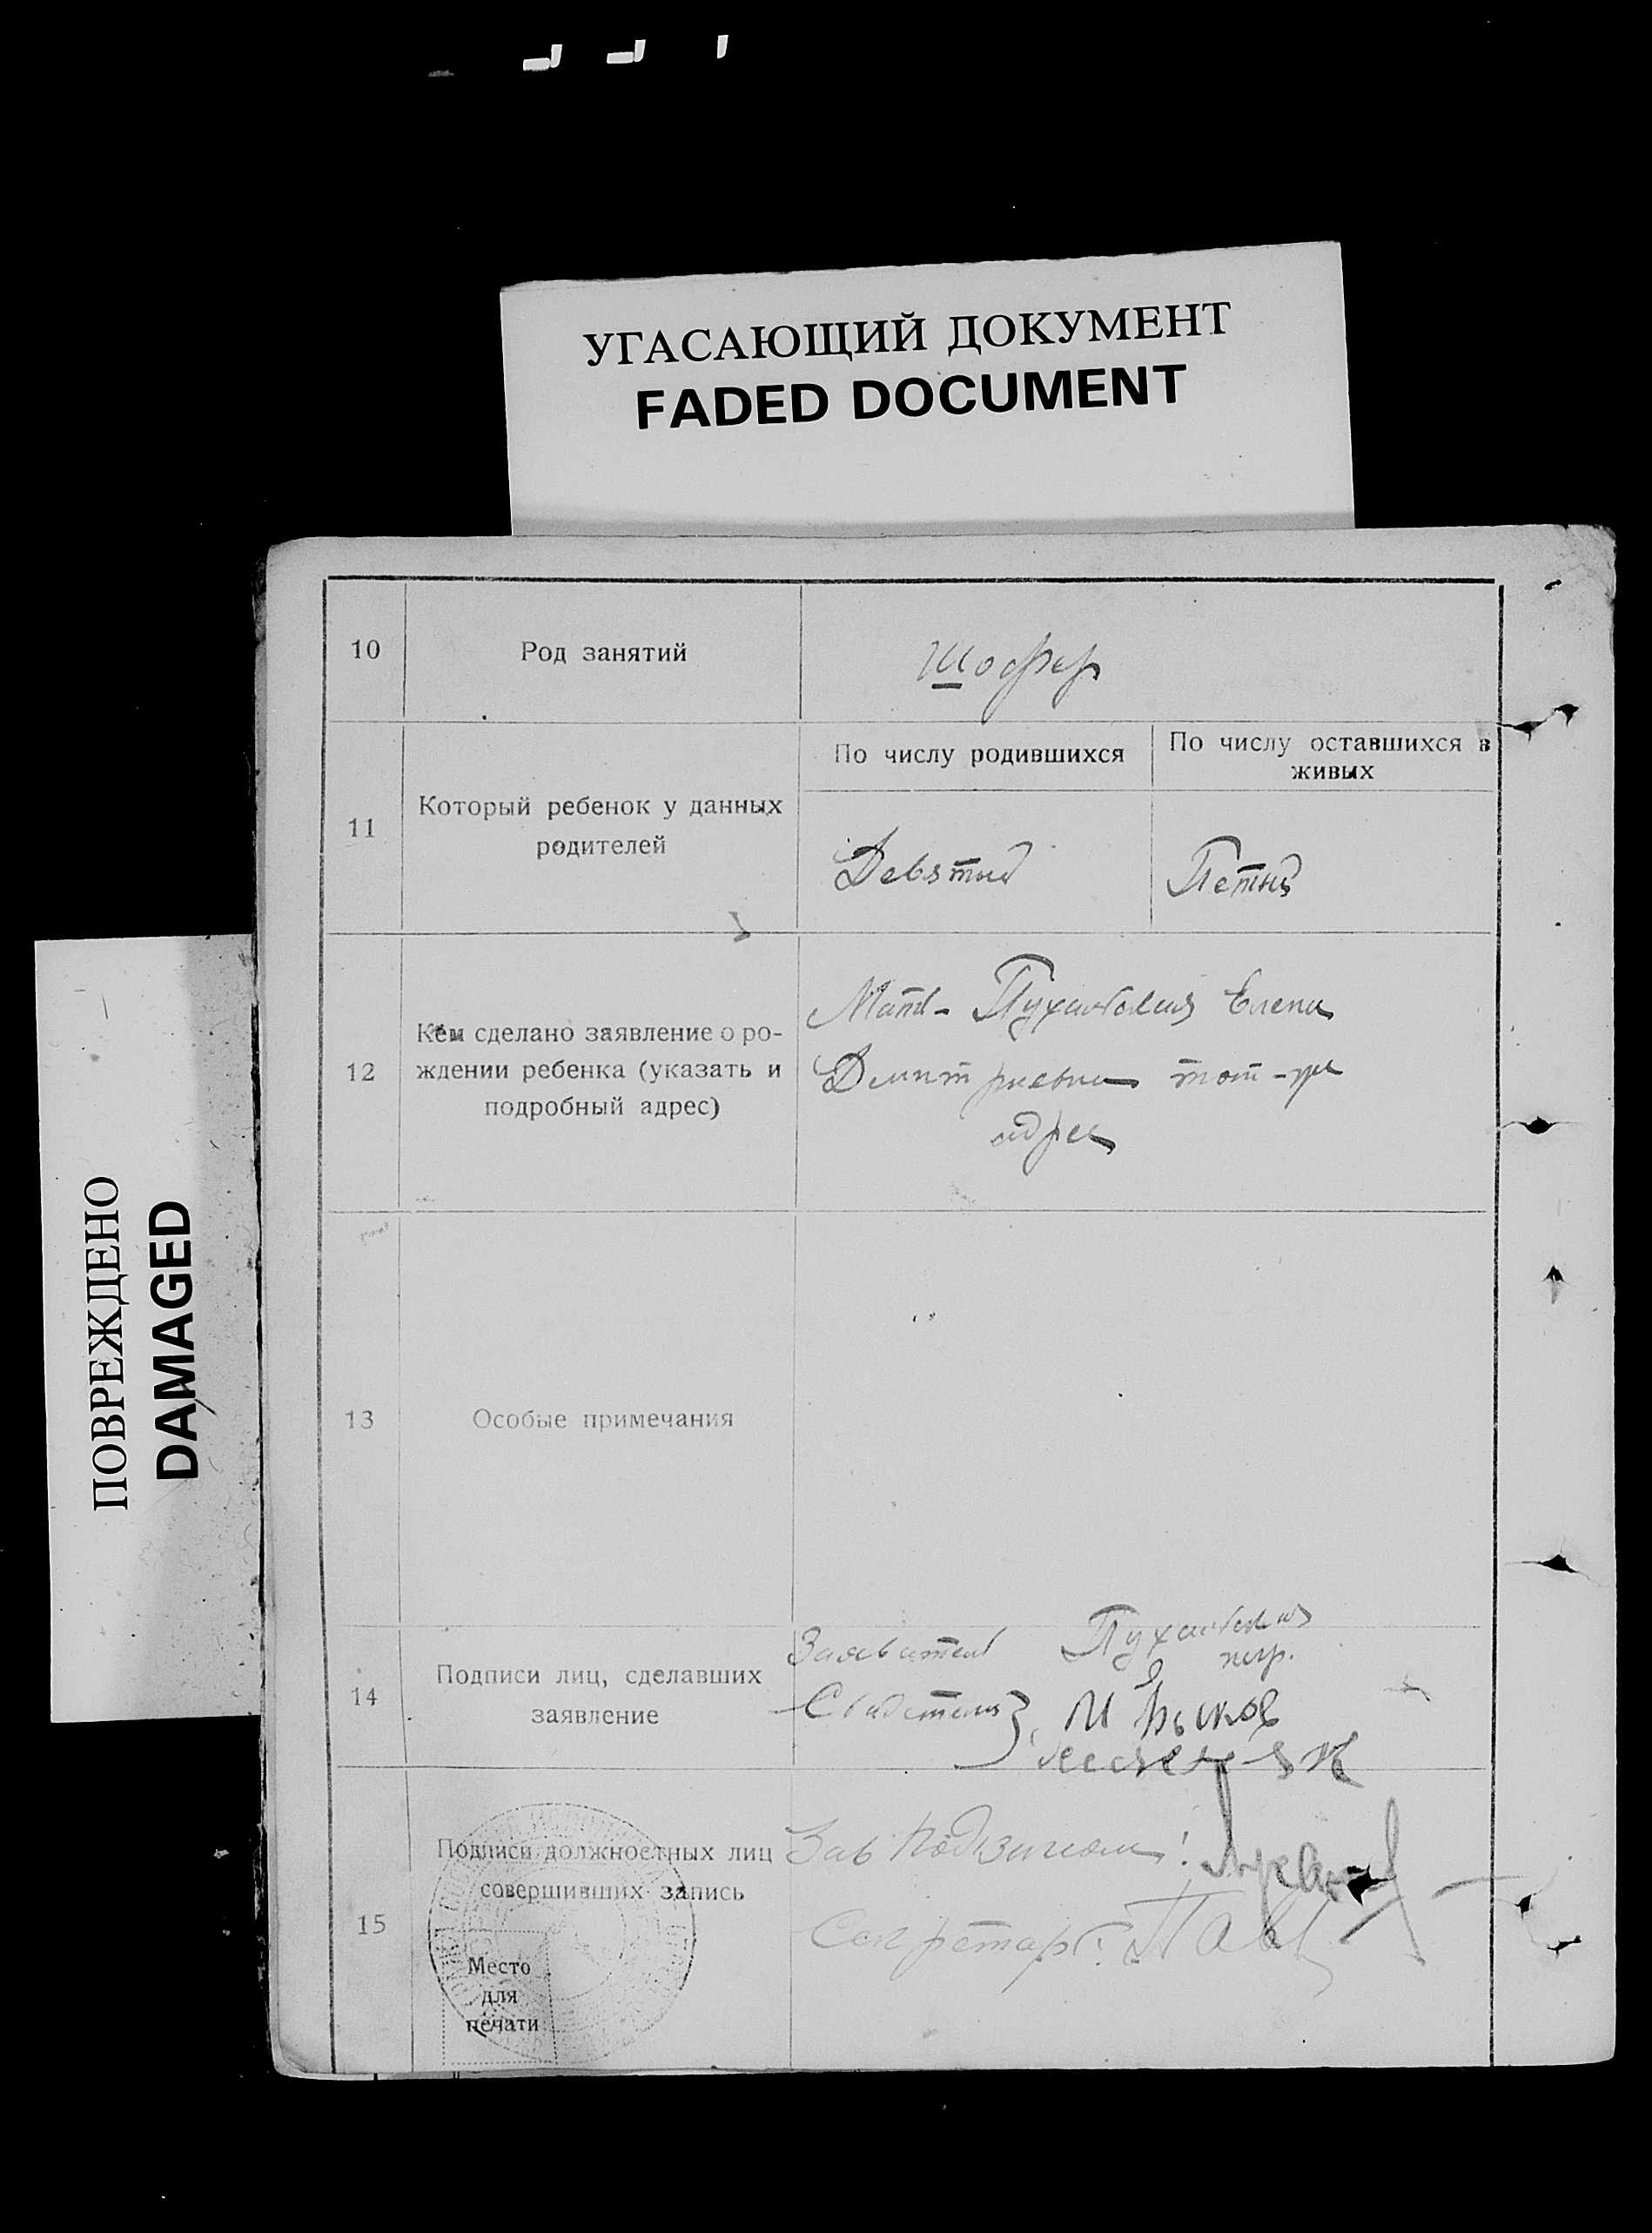 УГАСАЮЩИЙ ДОКУМЕНТ
FADED DOCUMENT
ПОВРЕЖДЕНО
DAMAGED
10
Род занятий
Шофер
11
Который ребенок у данных
родителей
По числу родившихся
По числу оставшихся в
живых
Девятый
Петый
12
Кем сделано заявление о ро-
ждении ребенка (указать и
подробный адрес)
Мать - Елена
Дмитриевна тот-же
адрес
13
Особые примечания
14
Подписи лиц, сделавших
заявление
Заявитель
Свидетели
15
Подписи должностных лиц
совершивших запись
Место
для
печати
Зав
Секретарь: